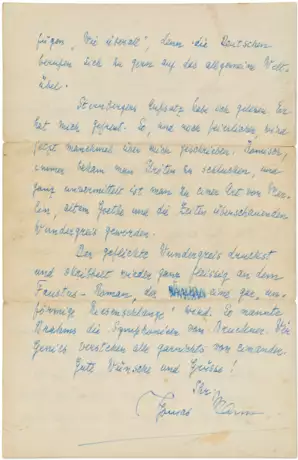 fügen „Wie überall", denn die Deutschen
berufen sich zu gern auf das allgemeine Welt-
übel.
Sternbergers Aufsatz habe ich gelesen. Er
hat mich gefreut. So, und noch feierlicher, wird
jetzt manchmal über mich geschrieben. Komisch,
immer bekam man Kröten zu schlucken, und
ganz unvermittelt ist man zu einer Art von Mer-
lin, altem Goethe und die Zeiten überschauenden
Wundergreis geworden.
Der geflickte Wundergreis druckst
und skribelt wieder ganz fleissig an dem
Faustus-Roman, der eine gar, un-
förmige Riesenschlange" wird. So nannte
Brahms die Symphonien von Bruckner. Die
Genies verstehen alle garnichts von einander.
Gute Wünsche und Grüsse!
Ihr
Thomas Mann